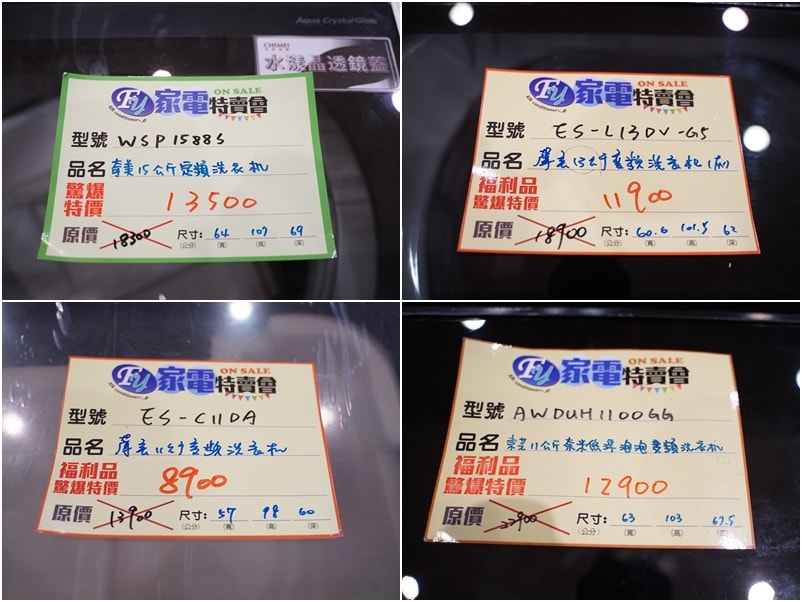 Aqua Crystal Glass
CHIMEI
水漾晶透鏡蓋
FY 家電特賣會 ON SALE
型號 WSP1588S
品名 奇美15公斤定頻洗衣机
驚爆特價 13500
原價 18500 尺寸:(公分) 64(寬) 107(高) 69(深)
FY 家電特賣會 ON SALE
型號 ES-L13DV-G5
品名 聲宝13公斤变頻洗衣机
福利品
驚爆特價 11900
原價 18900 尺寸:(公分) 60.6(寬) 101.5(高) 62(深)
FY 家電特賣會 ON SALE
型號 ES-C11DA
品名 聲宝11公斤变頻洗衣机
福利品
驚爆特價 8900
原價 13900 尺寸:(公分) 57(寬) 98(高) 60(深)
FY 家電特賣會 ON SALE
型號 AWDUH1100GG
品名 東芝11公斤奈米悬浮泡泡变頻洗衣机
福利品
驚爆特價 12900
原價 22900 尺寸:(公分) 63(寬) 103(高) 67.5(深)